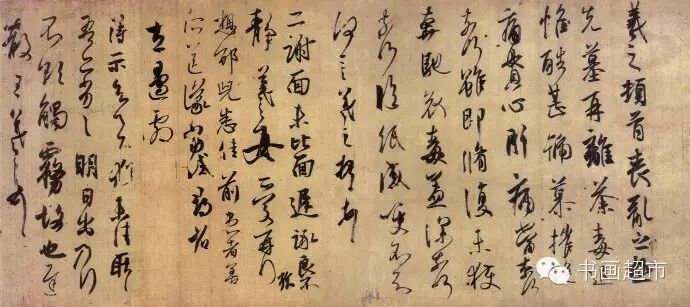 羲之頓首喪亂之極
先墓再離荼毒追
惟酷甚號慕摧絕
痛貫心肝痛當奈何
奈何雖即脩復未獲
奔馳哀毒益深奈何
奈何臨紙感哽不知
何言羲之頓首頓首
二謝面未比面遲詠良不
靜羲之女愛再拜
想邵兒悉佳前患者善
所送議當試尋省
左邊劇
得示知足下猶未佳耿耿
吾亦劣劣明日出乃行
不欲觸霧故也遲
散王羲之頓首
书画超市